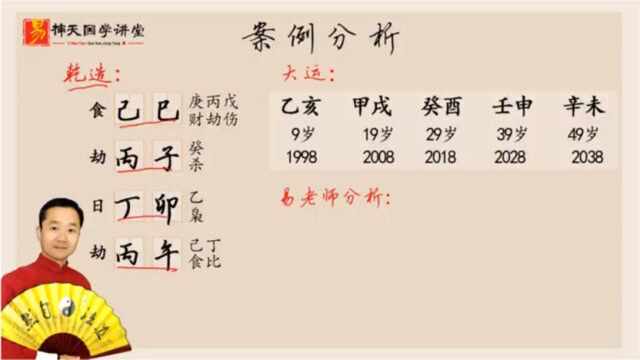 易
怖天国学讲堂
案例分析
乾造：
食 己 巳 庚丙戊
财劫伤
劫 丙 子 癸
杀
日 丁 卯 乙
枭
劫 丙 午 己丁
食比
大运：
乙亥 甲戌 癸酉 壬申 辛未
9岁 19岁 29岁 39岁 49岁
1998 2008 2018 2028 2038
易老师分析：